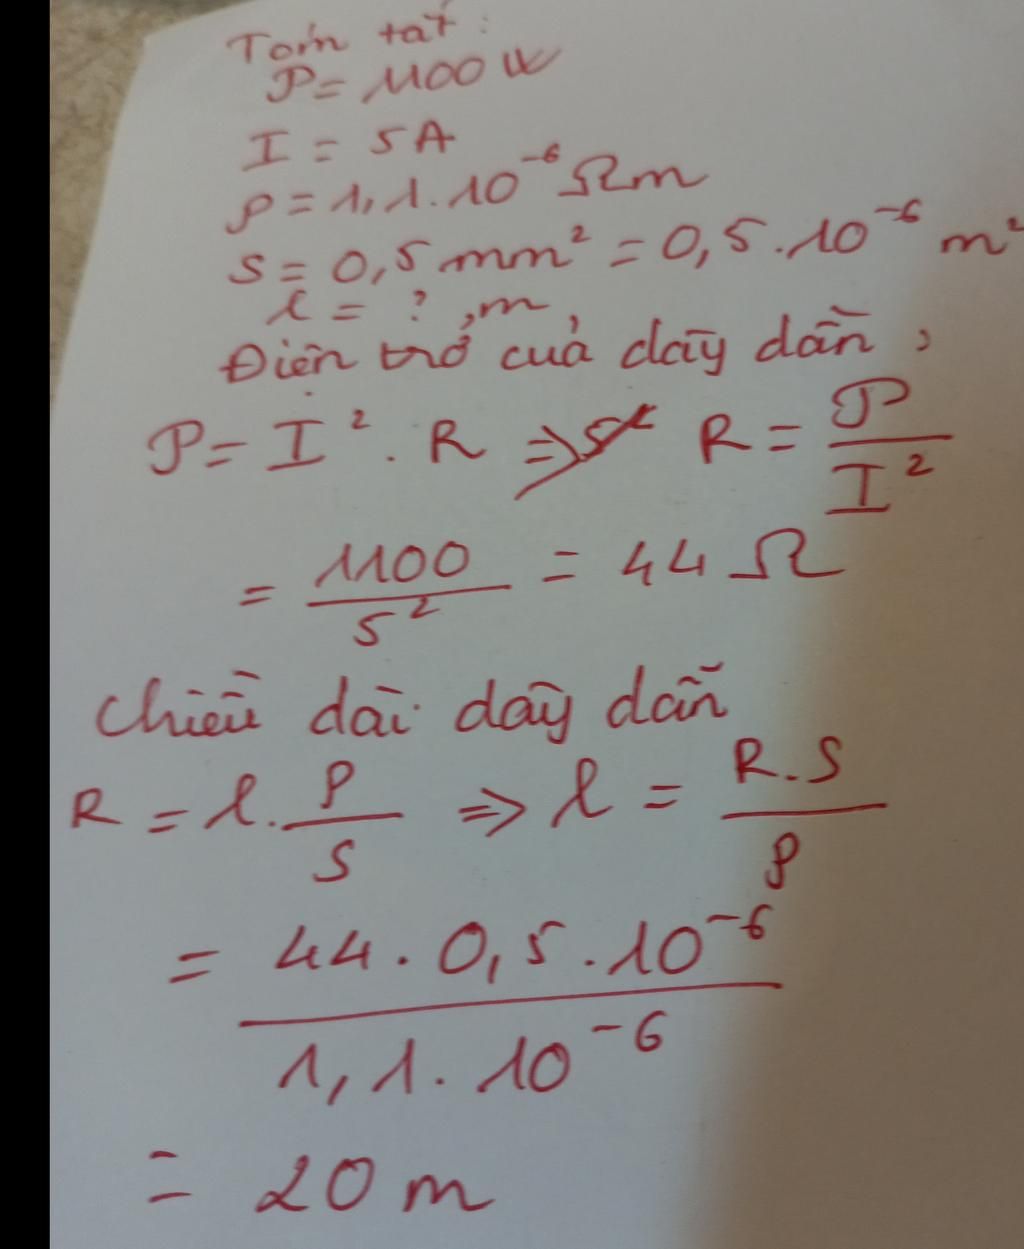 Tóm tắt:
P = 1100 W
I = 5A
ρ = 1,1.10⁻⁶ Ωm
S = 0,5 mm² = 0,5.10⁻⁶ m²
l = ? , m
Điện trở của dây dẫn:
P = I² . R => R = P / I²
= 1100 / 5² = 44 Ω
Chiều dài dây dẫn
R = l . ρ / S => l = R.S / ρ
= 44 . 0,5 . 10⁻⁶ / 1,1 . 10⁻⁶
= 20 m